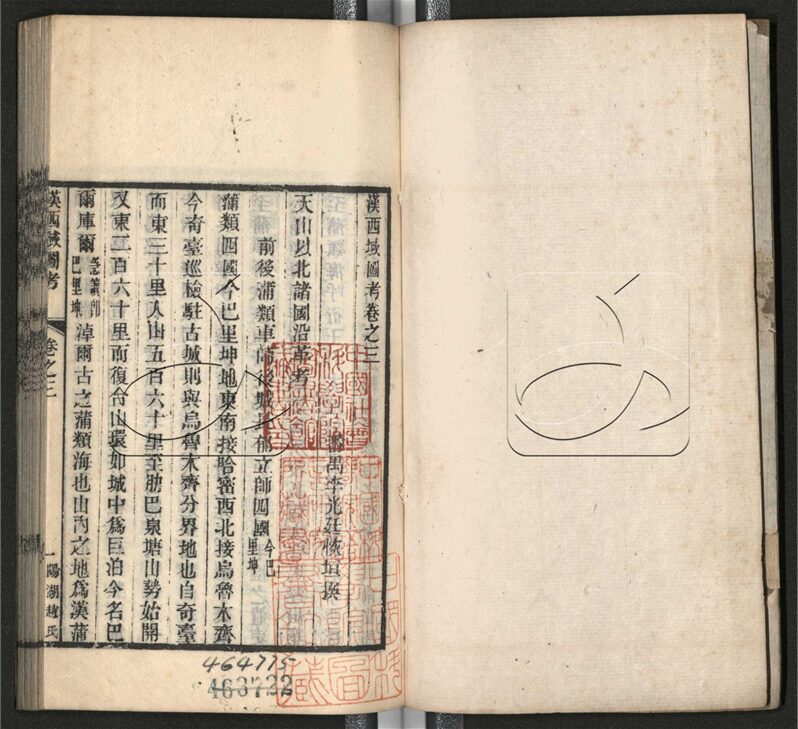 漢西域圖考卷之三
禺李光廷恢垣撰
天山以北諸國沿革考
前後蒲類車師後城
郁立師四國今巴里坤
蒲類四國今巴里坤地東南接哈密西北接烏魯木齊
今奇臺巡檢駐古城則與烏魯木齊分界地也自奇臺
而東三十里入山五百六十里至肋巴泉塘山勢始開
又東二百六十里而復合山環如城中爲巨泊今名巴
爾庫爾
急讀卽
巴里坤
淖爾古之蒲類海也山內之地爲漢蒲
漢西域圖考
卷之三
一
陽湖趙氏
464775
463722